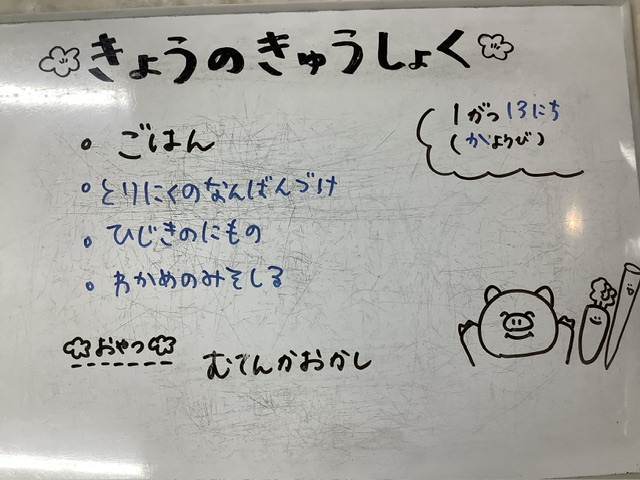 きょうのきゅうしょく
1がつ13にち
(かようび)
・ごはん
・とりにくのなんばんづけ
・ひじきのにもの
・わかめのみそしる
おやつ
むてんかおかし